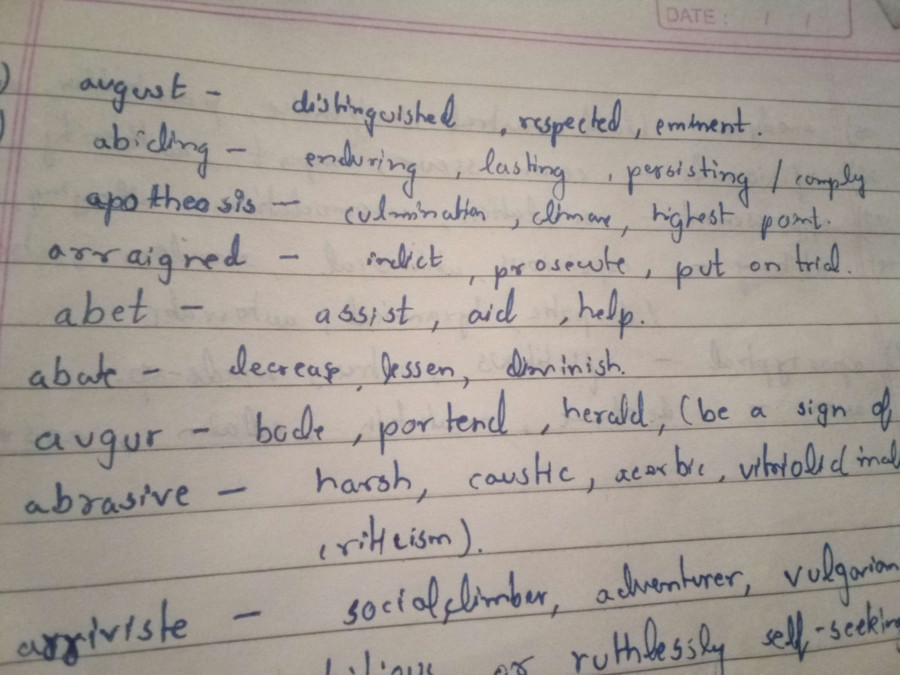 DATE: / /
august - distinguished, respected, eminent.
abiding - enduring, lasting, persisting / comply
apotheosis - culmination, climax, highest point.
arraigned - indict, prosecute, put on trial.
abet - assist, aid, help.
abate - decrease, lessen, diminish.
augur - bode, portend, herald, (be a sign of
abrasive - harsh, caustic, acerbic, vitriolic
criticism).
arriviste - social climber, adventurer, vulgarian
or ruthlessly self-seeking